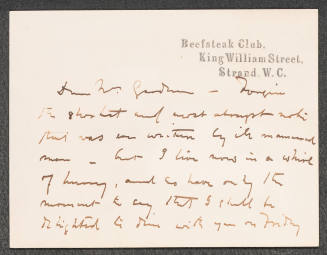 Beefsteak Club,
King William Street,
Strand. W. C.
Dear Mr. — Forgive
the shortest and most abrupt note
that was ever written by ill mannered
man — but I live now in a whirl
of hurry, and so have only the
moment to say that I shall be
delighted to dine with you on Friday